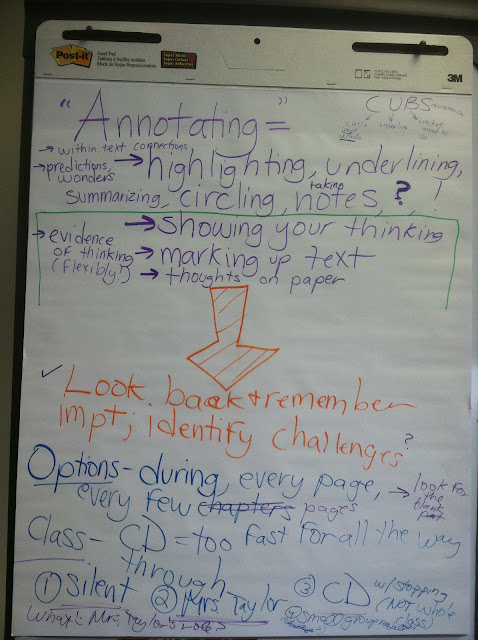 Post-it
Super Sticky
3M
"Annotating="
CUBS
circle underline
→ within text connections,
→ predictions, wonders
→ highlighting, underlining,
summarizing, circling, taking notes, ? !
→ Showing your thinking
→ evidence of thinking (flexibly!)
→ marking up text
→ thoughts on paper
✓ Look back + remember
impt; identify challenges?
Options- during, every page,
every few chapters pages
→ look for the blank
Class- CD = too fast for all the way
through
① Silent ② Mrs. Taylor ③ CD w/ stopping
(NOT whole class)
④ small group
What's Mrs. Taylor's